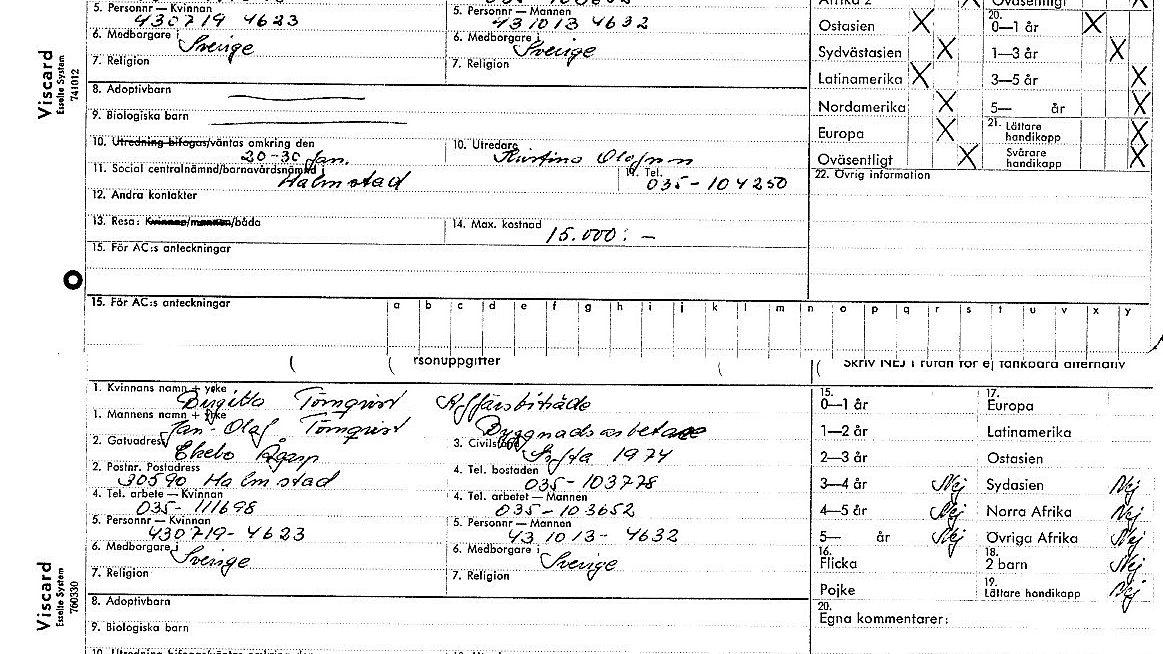 5. Personnr — Kvinnan 5. Personnr — Mannen
430719 4623 431013 4632
6. Medborgare i Sverige 6. Medborgare i Sverige
7. Religion 7. Religion
8. Adoptivbarn
9. Biologiska barn
10. Utredning bifogas/väntas omkring den 10. Utredare
20-30 Jan.
11. Social centralnämnd/barnavårdsnämnd i 11. Tel.
Halmstad 035-104250
12. Andra kontakter
13. Resa: Kvinnan/mannen/båda 14. Max. kostnad
15.000:-
15. För AC:s anteckningar
15. För AC:s anteckningar
a b c d e f g h i j k l m n o p q r s t u v x y
Viscard
Esselte System
741012
Afrika 2 X Oväsentligt X
Ostasien X 20. 0—1 år X
Sydvästasien X 1—3 år X
Latinamerika X 3—5 år X
Nordamerika X 5— år X
Europa X 21. Lättare handikapp X
Oväsentligt X Svårare handikapp X
22. Övrig information
rsonuppgifter
Skriv NEJ i rutan för ej tänkbara alternativ
1. Kvinnans namn + yrke
Birgitta Törnqvist Affärsbiträde
1. Mannens namn + yrke
Jan-Olof Törnqvist Byggnadsarbetare
2. Gatuadress 3. Civilstånd
Ekebo Gifta 1974
2. Postnr. Postadress 4. Tel. bostaden
30590 Halmstad 035-103778
4. Tel. arbete — Kvinnan 4. Tel. arbetet — Mannen
035-111698 035-103652
5. Personnr — Kvinnan 5. Personnr — Mannen
430719-4623 431013-4632
6. Medborgare i Sverige 6. Medborgare i Sverige
7. Religion 7. Religion
8. Adoptivbarn
9. Biologiska barn
Viscard
Esselte System
760330
15. 17.
0—1 år Europa
1—2 år Latinamerika
2—3 år Ostasien
3—4 år Nej Sydasien Nej
4—5 år Nej Norra Afrika Nej
5— år Nej Övriga Afrika Nej
16. 18.
Flicka 2 barn Nej
19.
Pojke Lättare handikapp Nej
20.
Egna kommentarer: